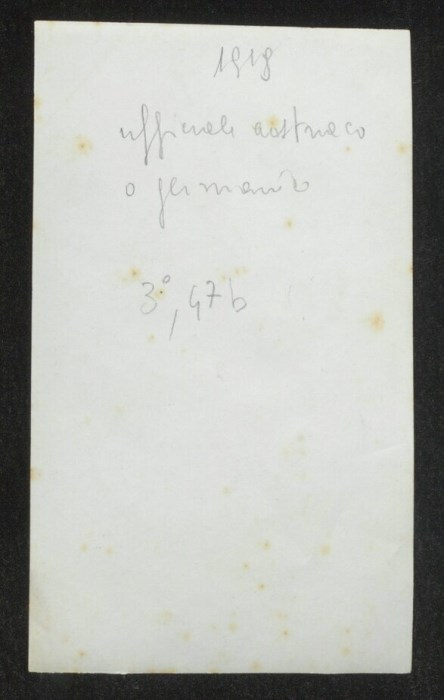 1918
ufficiale austriaco
o germanico
3°, 47 b